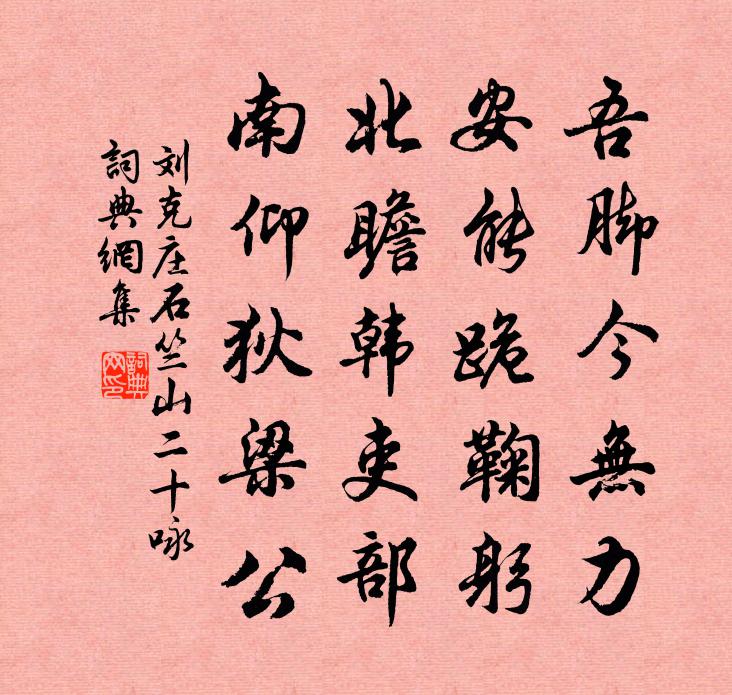 吾脚今無力
安能跪鞠躬
北瞻韩吏部
南仰狄梁公
刘克庄石竺山二十咏
詞典網集
詞典
网印